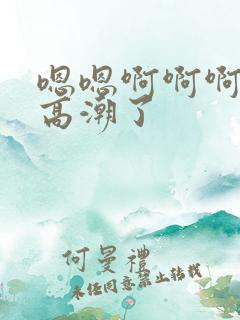 嗯嗯啊啊啊
高潮了
何曼禮
未经同意禁止转载